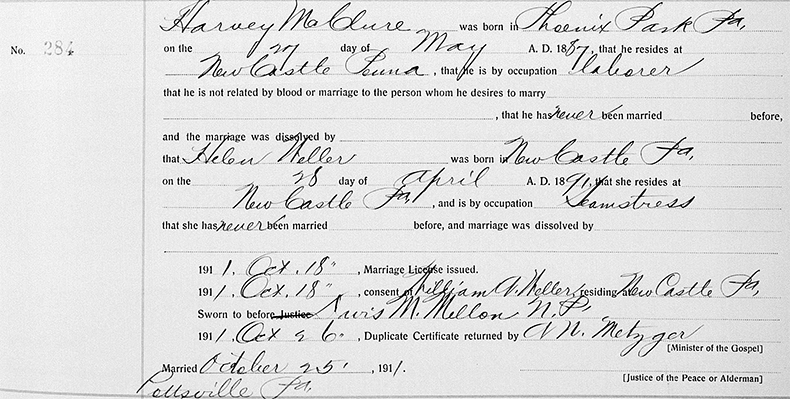 Harvey McClure was born in Phoenix Park Pa,
No. 284 on the 27 day of May A. D. 1887, that he resides at
New Castle Penna, that he is by occupation laborer
that he is not related by blood or marriage to the person whom he desires to marry
, that he has never been married before,
and the marriage was dissolved by
that Helen Weller was born in New Castle Pa,
on the 28 day of April A. D. 1891, that she resides at
New Castle Pa, and is by occupation Seamstress
that she has never been married before, and marriage was dissolved by
1911. Oct. 18", Marriage License issued.
1911. Oct. 18", consent of William A. Weller, residing at New Castle Pa,
Sworn to before Justice M. Mellon N. P.
1911. Oct 26", Duplicate Certificate returned by A N. Metzger
[Minister of the Gospel]
Married October 25', 1911.
[Justice of the Peace or Alderman]
Pottsville Pa,